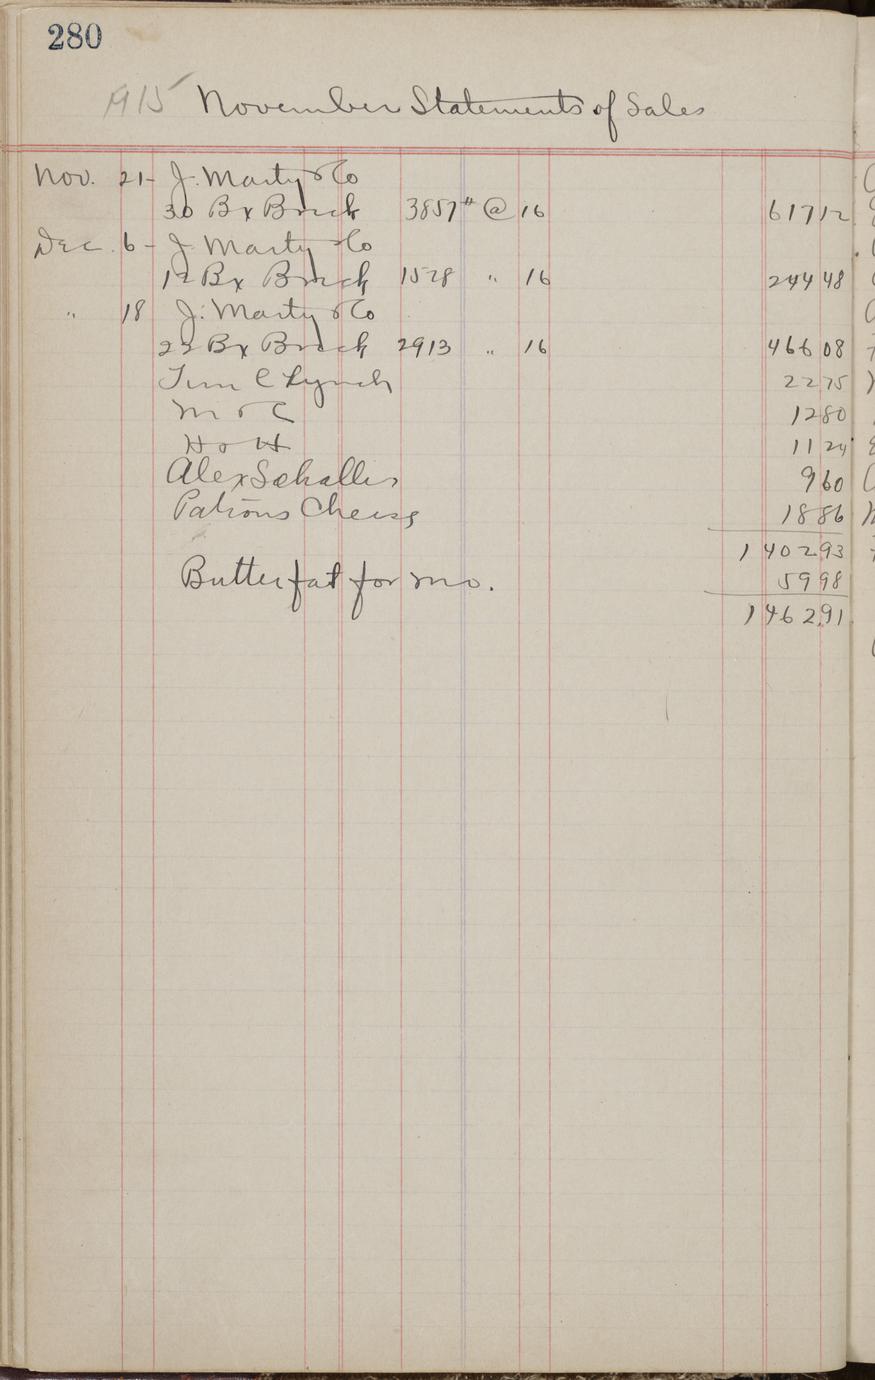 280
1915 November Statements of Sales
Nov. 21- J. Marty & Co
30 Bx Brick 3857# @ 16 617 12
Dec. 6- J. Marty & Co
12 Bx Brick 1528 " 16 244 48
" 18 J. Marty & Co
22 Bx Brick 2913 " 16 466 08
Tim C Lynch 22 75
M & C 12 80
H & H 11 24
Alex Schallis 9 60
Patrons Cheese 18 86
1 402 93
Butter fat for mo. 59 98
1 462.91